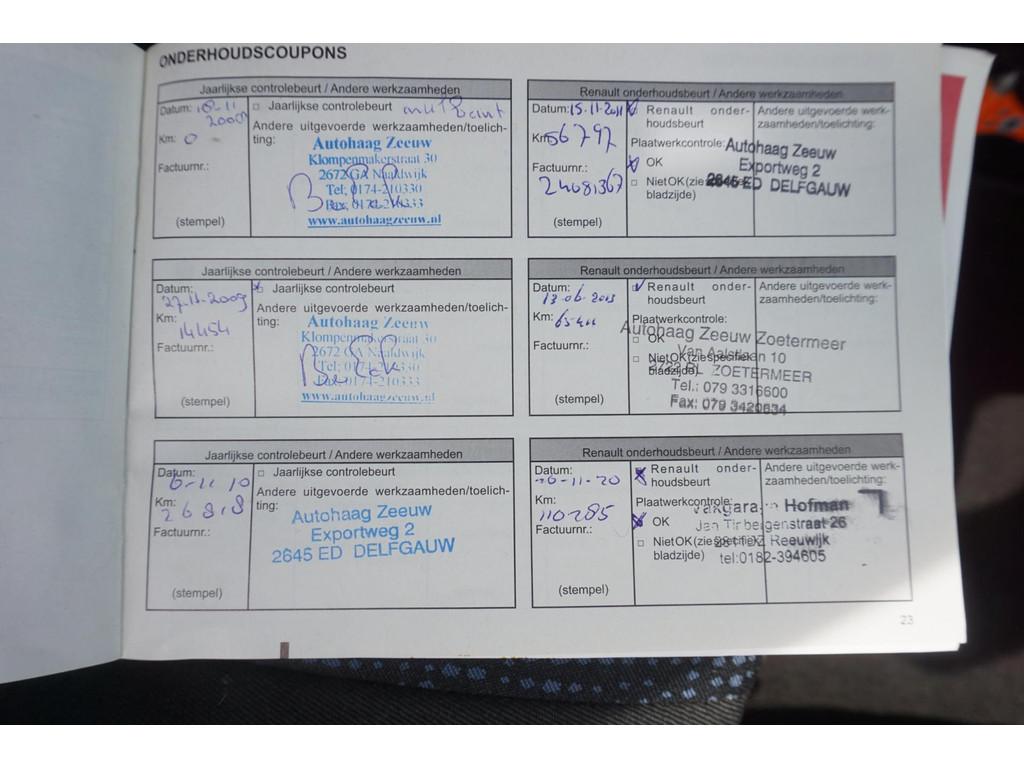 ONDERHOUDSCOUPONS
Jaarlijkse controlebeurt / Andere werkzaamheden
Datum:
2009
□ Jaarlijkse controlebeurt
Km: 0
Andere uitgevoerde werkzaamheden/toelich-
ting:
Factuurnr.:
(stempel)
Autohaag Zeeuw
Klompenmakerstraat 30
2672 GA Naaldwijk
Tel: 0174-210330
Fax: 0174-210333
www.autohaagzeeuw.nl
Jaarlijkse controlebeurt / Andere werkzaamheden
Datum:
27-11-2009
Jaarlijkse controlebeurt
Km:
14454
Andere uitgevoerde werkzaamheden/toelich-
ting:
Factuurnr.:
(stempel)
Autohaag Zeeuw
Klompenmakerstraat 30
2672 GA Naaldwijk
Tel: 0174-210330
Fax: 0174-210333
www.autohaagzeeuw.nl
Jaarlijkse controlebeurt / Andere werkzaamheden
Datum:
6-11 10
□ Jaarlijkse controlebeurt
Km:
26818
Andere uitgevoerde werkzaamheden/toelich-
ting:
Factuurnr.:
(stempel)
Autohaag Zeeuw
Exportweg 2
2645 ED DELFGAUW
Renault onderhoudsbeurt / Andere werkzaamheden
Datum: 15.11.2011
Renault onder-
houdsbeurt
Andere uitgevoerde werk-
zaamheden/toelichting:
Km: 56797
Plaatwerkcontrole:
OK
Factuurnr.:
24081367
□ Niet OK (zie
bladzijde)
(stempel)
Autohaag Zeeuw
Exportweg 2
2645 ED DELFGAUW
Renault onderhoudsbeurt / Andere werkzaamheden
Datum:
13-06-2013
Renault onder-
houdsbeurt
Andere uitgevoerde werk-
zaamheden/toelichting:
Km:
Plaatwerkcontrole:
□ OK
Factuurnr.:
□ Niet OK (zie specifieke
bladzijde)
(stempel)
Autohaag Zeeuw Zoetermeer
10
ZOETERMEER
Tel.: 079 3316600
Fax: 079 3420634
Renault onderhoudsbeurt / Andere werkzaamheden
Datum:
-11-20
Renault onder-
houdsbeurt
Andere uitgevoerde werk-
zaamheden/toelichting:
Km:
110285
Plaatwerkcontrole:
OK
Factuurnr.:
□ Niet OK (zie specifieke
bladzijde)
(stempel)
Vakgarage Hofman
Jan Tinbergenstraat 26
Reeuwijk
tel:0182-394605
23